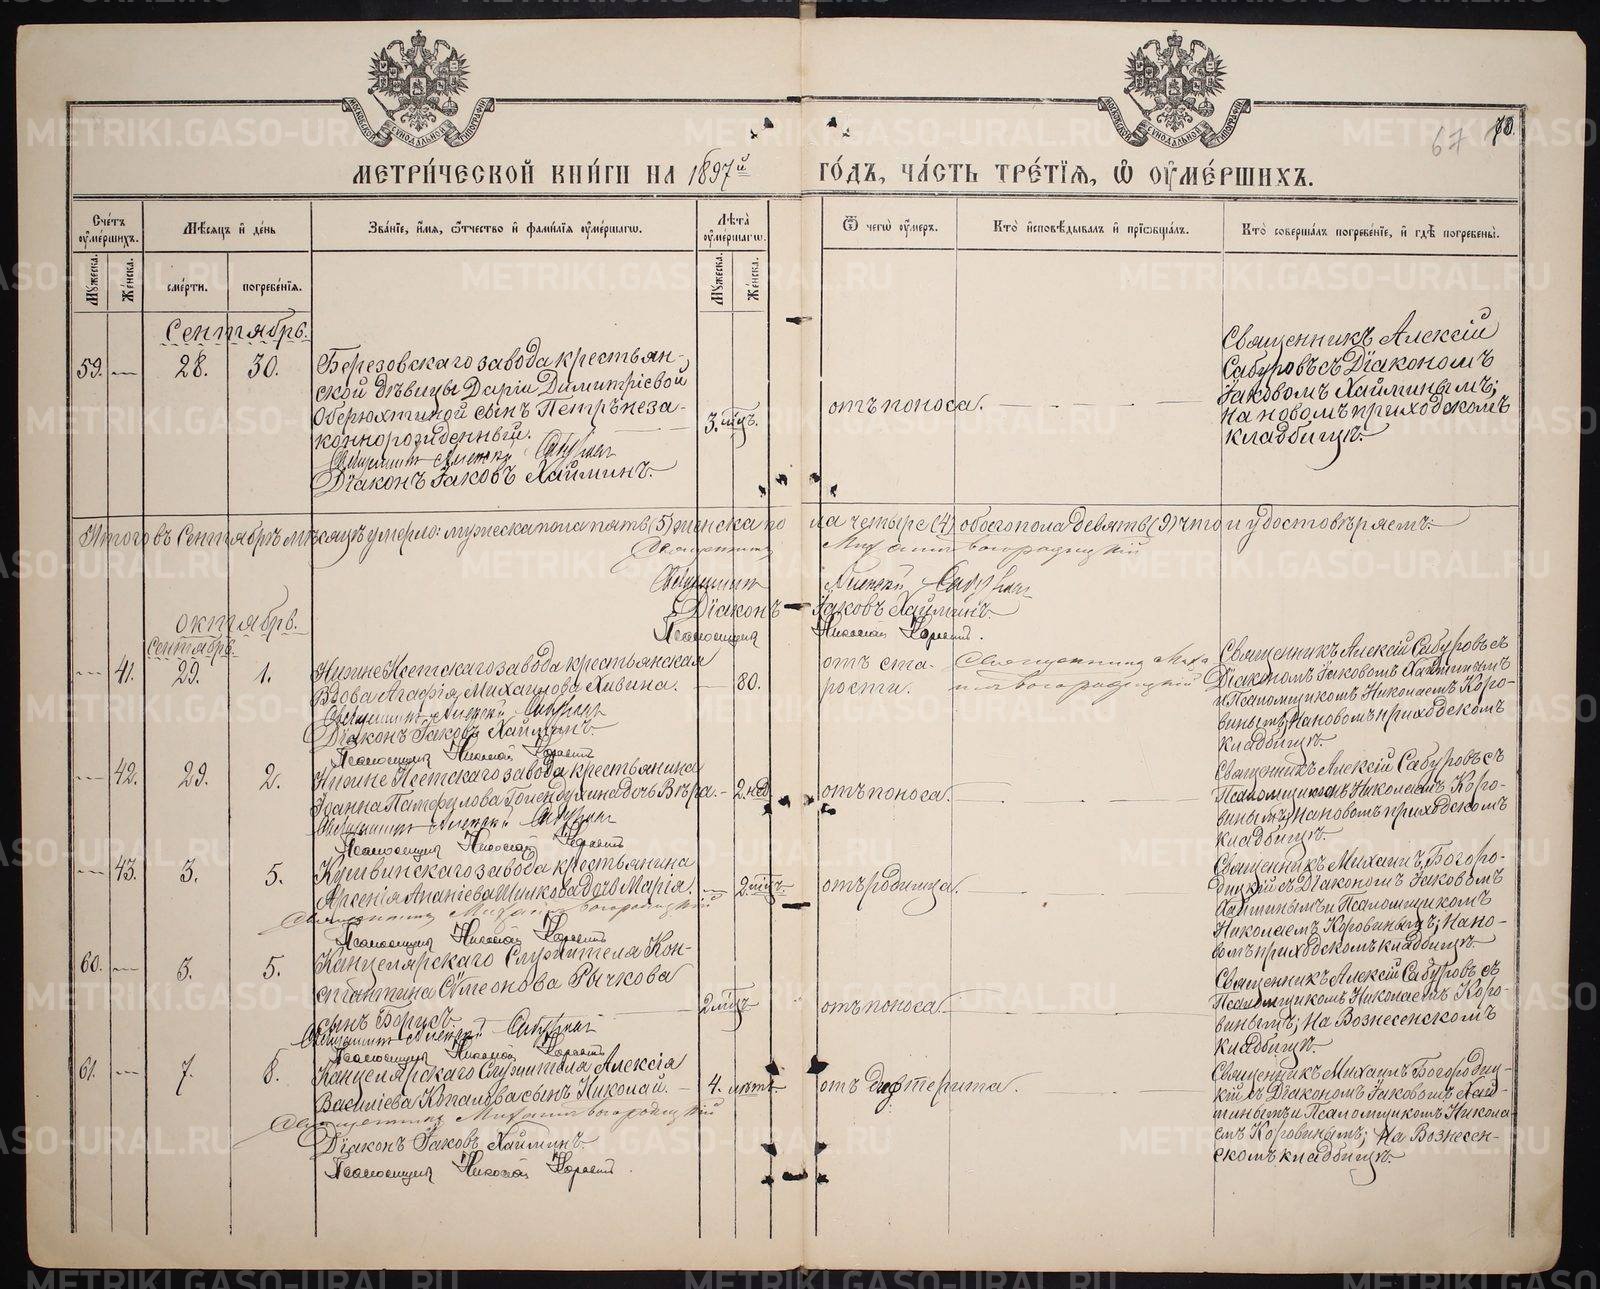 67 70.
МЕТРИЧЕСКОЙ КНИГИ НА 1897й ГОДЪ, ЧАСТЬ ТРЕТІЯ, Ѽ ОУМЕРШИХЪ.
Счетъ оумершихъ.
Мѣсяцъ и день
Званіе, имя, ѿчество и фамилія оумершагѡ.
Лѣта оумершагѡ.
Ѿ чегѡ оумеръ.
Кто исповѣдывалъ и пріобщалъ.
Кто совершалъ погребеніе, и гдѣ погребены.
Мужеска.
Женска.
смерти.
погребенія.
Мужеска.
Женска.
Сентябрь.
59. — 28. 30.
Березовскаго завода крестьян-
ской дѣвицы Даріи Димитріевой
Оберюхтиной сынъ Петръ неза-
коннорожденный.
Священникъ Алексій Сабуровъ
Діаконъ Іаковъ Хайминъ.
3. мѣц.
отъ поноса.
Священникъ Алексій
Сабуровъ съ Діакономъ
Іаковомъ Хайминымъ;
на новомъ приходскомъ
кладбищѣ.
Итого въ Сентябрѣ мѣсяцѣ умерло: мужеска пола пять (5) женска пола четыре (4) обоего пола девять (9) что и удостовѣряемъ:
Священникъ Михаилъ Богородицкій
Священникъ Алексій Сабуровъ
Діаконъ Іаковъ Хайминъ.
Псаломщикъ Николай Коровинъ.
Октябрь.
Сентябрь.
— 41. 29. 1.
Нижне Исетскаго завода крестьянская
Вдова Агафія Михаилова Хивина.
Священникъ Алексій Сабуровъ
Діаконъ Іаковъ Хайминъ.
Псаломщикъ Николай Коровинъ
— 80.
отъ ста-
рости.
Священникъ Миха-
илъ Богородицкій
Священникъ Алексій Сабуровъ съ
Діакономъ Іаковомъ Хайминымъ
и Псаломщикомъ Николаемъ Коро-
винымъ; На новомъ приходскомъ
кладбищѣ.
— 42. 29. 2.
Нижне Исетскаго завода крестьянина
Іоанна Памфилова Голендухина дочь Вѣра.
Священникъ Алексій Сабуровъ
Псаломщикъ Николай Коровинъ
— 2. нед.
отъ поноса.
Священникъ Алексій Сабуровъ съ
Псаломщикомъ Николаемъ Коро-
винымъ; На новомъ приходскомъ
кладбищѣ.
— 43. 3. 5.
Кушвинскаго завода крестьянина
Арсенія Ананіева Шишкова дочь Марія.
Священникъ Михаилъ Богородицкій
Псаломщикъ Николай Коровинъ
— 2 мѣц.
отъ родимца.
Священникъ Михаилъ Богоро-
дицкій съ Діакономъ Іаковомъ
Хайминымъ и Псаломщикомъ
Николаемъ Коровинымъ; На но-
вомъ приходскомъ кладбищѣ.
60. — 3. 5.
Канцелярскаго Служителя Кон-
стантина Сѵмеонова Рычкова
сынъ Борисъ.
Священникъ Алексій Сабуровъ
Псаломщикъ Николай Коровинъ
2 мѣц.
отъ поноса.
Священникъ Алексій Сабуровъ съ
Псаломщикомъ Николаемъ Коро-
винымъ; На Вознесенскомъ
кладбищѣ.
61. — 7. 8.
Канцелярскаго Служителя Алексія
Василіева Копалова сынъ Николай.
Священникъ Михаилъ Богородицкій
Діаконъ Іаковъ Хайминъ
Псаломщикъ Николай Коровинъ.
4. лѣтъ
отъ дифтерита.
Священникъ Михаилъ Богородиц-
кій съ Діакономъ Іаковомъ Хай-
минымъ и Псаломщикомъ Никола-
емъ Коровинымъ; На Вознесен-
скомъ кладбищѣ.
METRIKI.GASO-URAL.RU